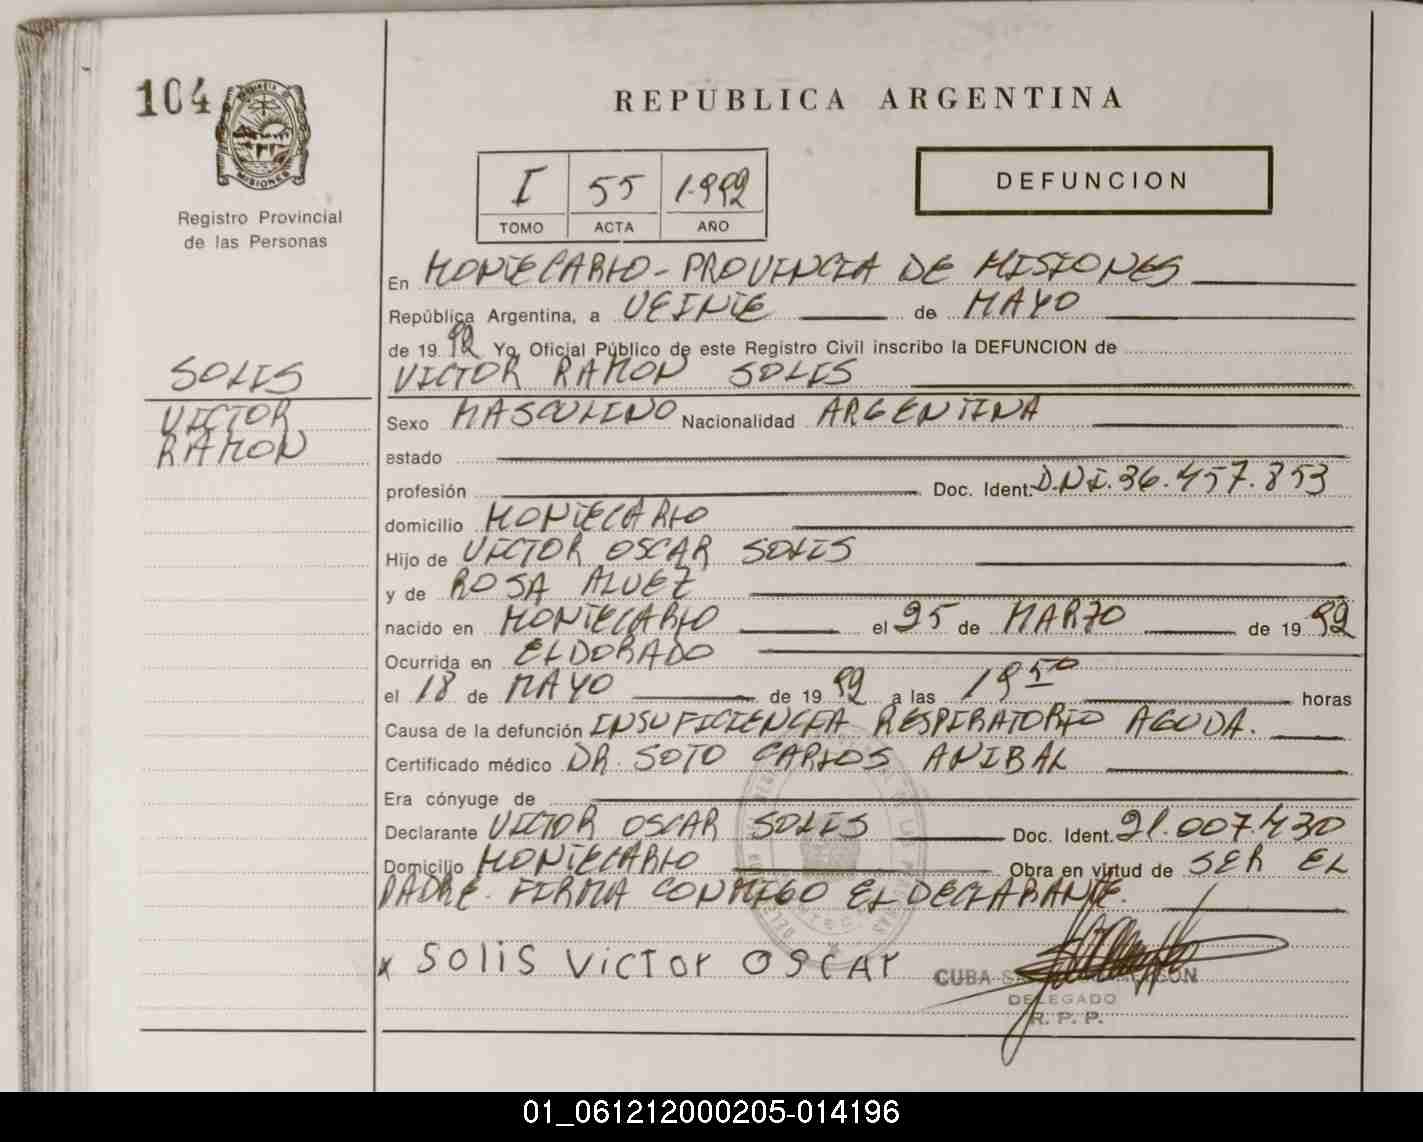 104
MISIONES
Registro Provincial
de las Personas
REPUBLICA ARGENTINA
I 55 1.992
TOMO ACTA AÑO
DEFUNCION
En MONTECARLO - PROVINCIA DE MISIONES
República Argentina, a VEINTE de MAYO
de 19 92 Yo, Oficial Público de este Registro Civil inscribo la DEFUNCION de
SOLIS VICTOR RAMON SOLIS
VICTOR Sexo MASCULINO Nacionalidad ARGENTINA
RAMON estado
profesión Doc. Ident. D.N.I. 36.457.853
domicilio MONTECARLO
Hijo de VICTOR OSCAR SOLIS
y de ROSA ALVEZ
nacido en MONTECARLO el 25 de MARZO de 19 92
Ocurrida en ELDORADO
el 18 de MAYO de 19 92 a las 19 50 horas
Causa de la defunción INSUFICIENCIA RESPIRATORIO AGUDA.
Certificado médico DR. SOTO CARLOS ANIBAL
Era cónyuge de
Declarante VICTOR OSCAR SOLIS Doc. Ident. 21.007.430
Domicilio MONTECARLO Obra en virtud de SER EL
PADRE. FIRMA CONMIGO EL DECLARANTE.
x SOLIS VICTOR OSCAR
CUBA
DELEGADO
R. P. P.
01_061212000205-014196